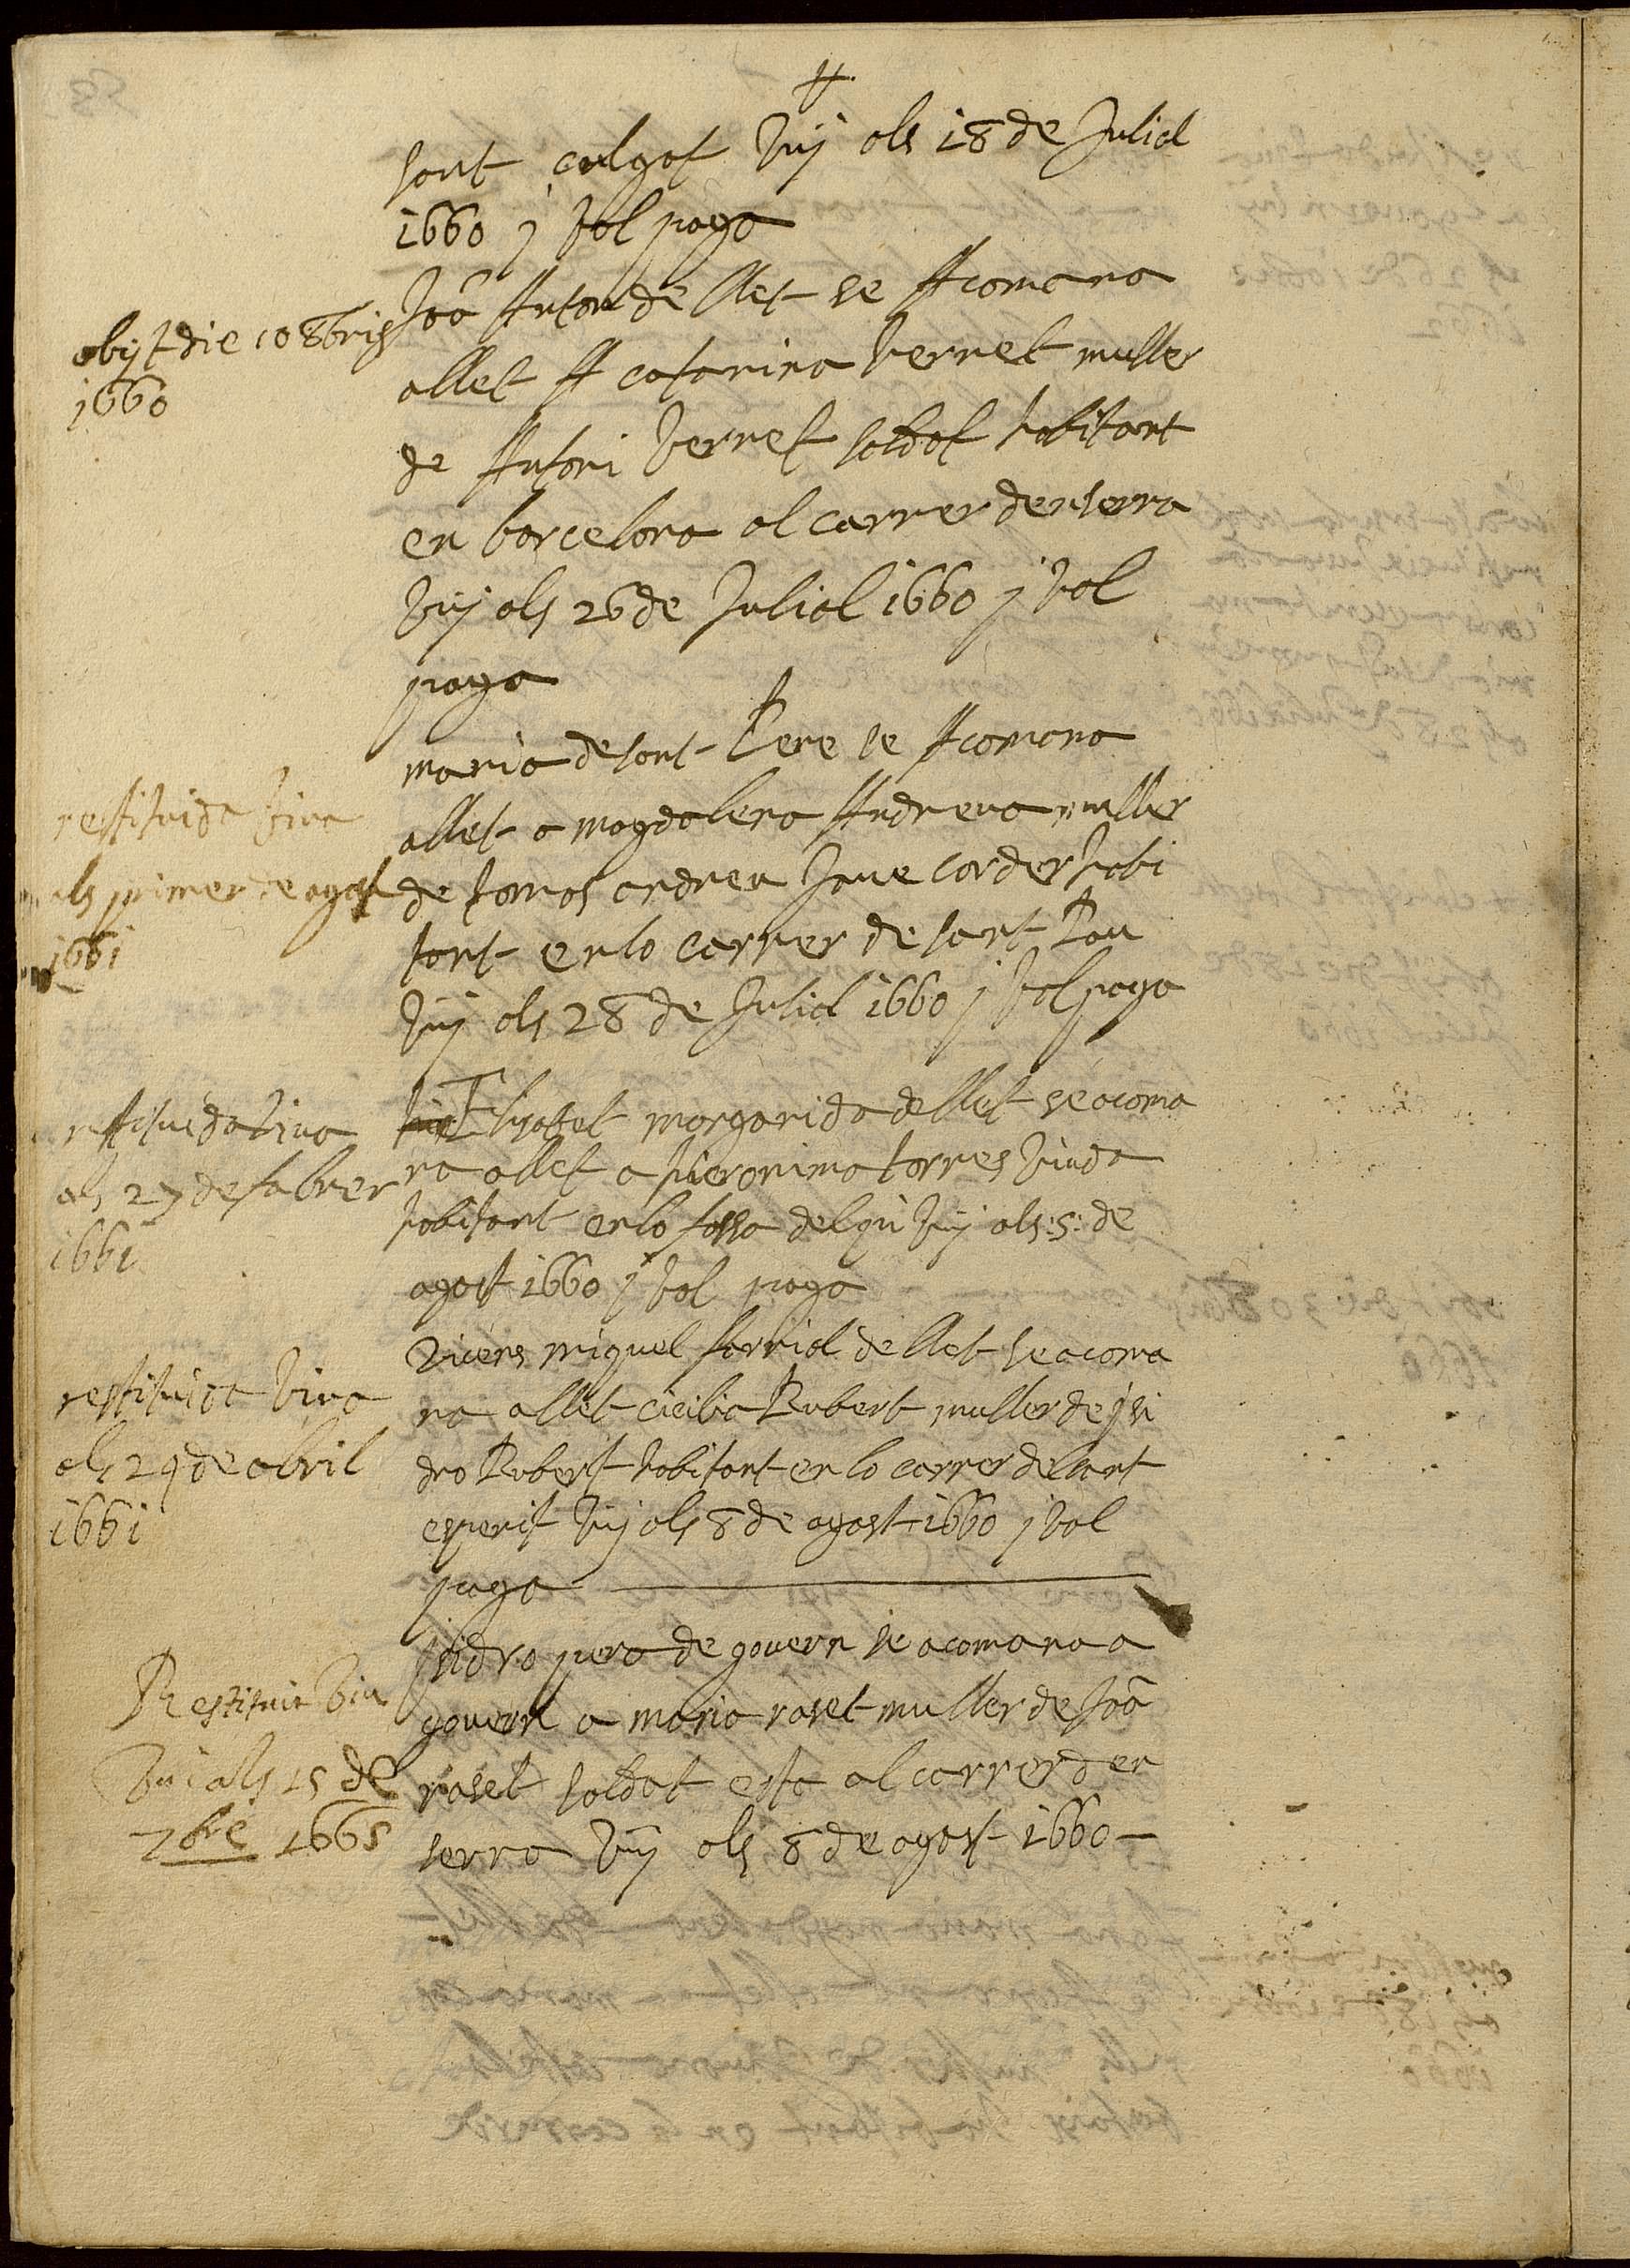 sant culgat vuy als 18 de Juliol
1660 j vol paga
obijt die 10 8bris
1660
Joã Anton de llet se Acomana
allet A catarina vernet muller
de Antoni vernet soldat habitant
en barcelona al carrer den serra
vuy als 26 de Juliol 1660 j vol
paga
restituida viva
als primer de agost
1661
maria de sant Pere se Acomana
allet a magdalena Andreua muller
de tomas andreu Jove corder habi
tant en lo carrer de sant Pau
vuy als 28 de Juliol 1660 j vol paga
restituida viva
als 27 de fabrer
1661
Elisabet margarida de llet se acoma
na allet a hieronima torres viuda
habitant en lo fossa del pi vuy als :5: de
agost 1660 j vol paga
restituida viva
als 29 de abril
1661
vicens miquel farriol de llet se acoma
na allet cicilia Rubert muller de ysi
dro Rubert habitant en lo carrer de sant
esperit vuy als 8 de agost 1660 j vol
paga
Restituit viu
vui als 15 de
7bre 1665
jsidro pera de govern se acomana a
govern a maria raset muller de Joã
raset soldat esta al carrer den
serra vuy als 8 de agost 1660